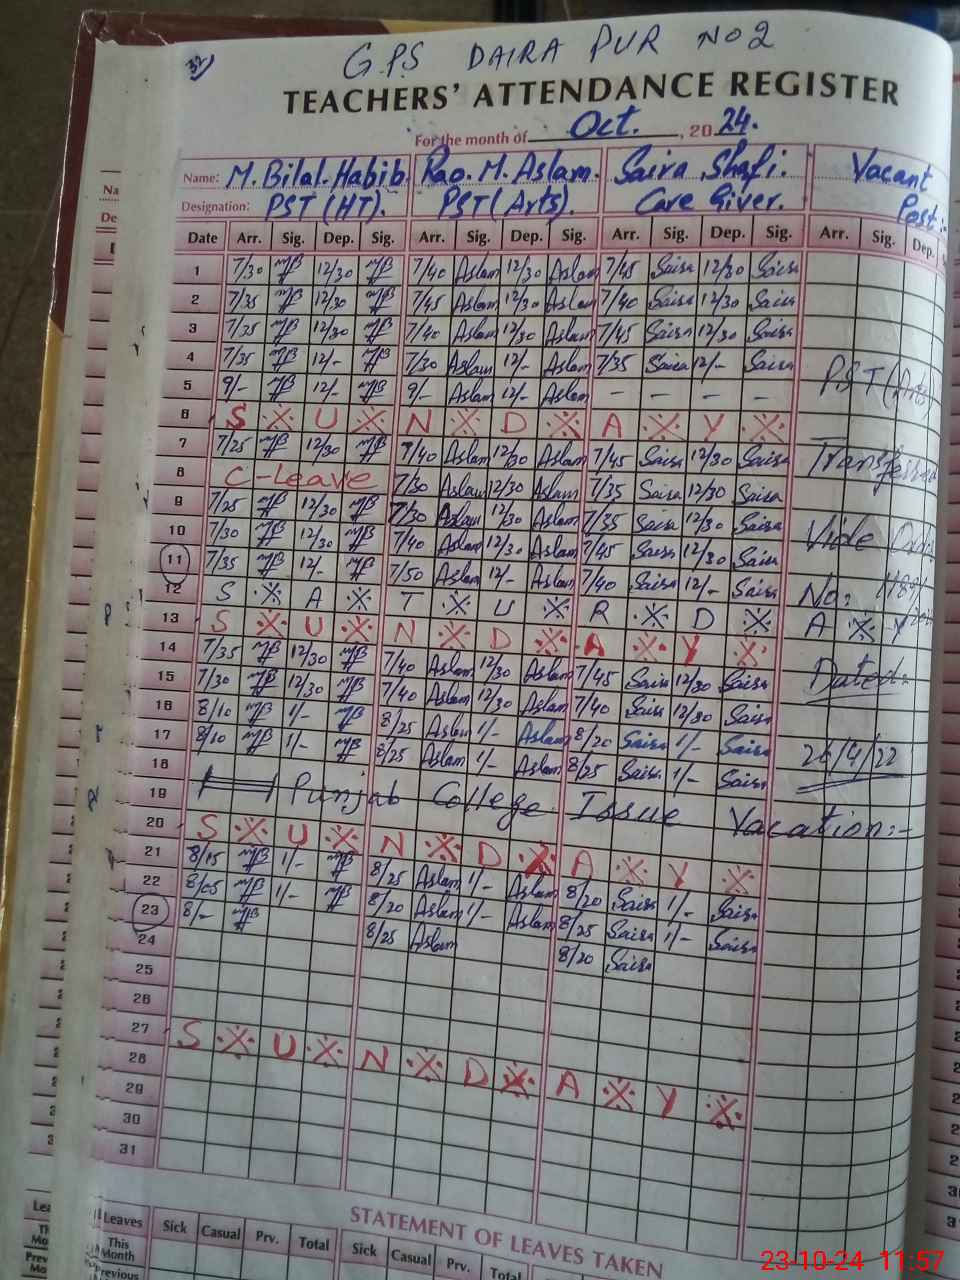 32)
G.P.S DAIRA PUR NO 2
TEACHERS' ATTENDANCE REGISTER
For the month of Oct. , 20 24.
Name: M. Bilal. Habib. Rao. M. Aslam. Saira Shafi. Vacant
Designation: PST (HT). PST (Arts). Care Giver. Post:-
Date Arr. Sig. Dep. Sig. Arr. Sig. Dep. Sig. Arr. Sig. Dep. Sig. Arr. Sig. Dep.
1 7/30 MB 12/30 MB 7/40 Aslam 12/30 Aslam 7/45 Saira 12/30 Saira
2 7/35 MB 12/30 MB 7/45 Aslam 12/30 Aslam 7/40 Saira 12/30 Saira
3 7/35 MB 12/30 MB 7/40 Aslam 12/30 Aslam 7/45 Saira 12/30 Saira
4 7/35 MB 12/- MB 7/30 Aslam 12/- Aslam 7/35 Saira 12/- Saira PST (Arts)
5 9/- MB 12/- MB 9/- Aslam 12/- Aslam - - - -
6 S U N D A Y
7 7/25 MB 12/30 MB 7/40 Aslam 12/30 Aslam 7/45 Saira 12/30 Saira Transferred
8 C-Leave 7/30 Aslam 12/30 Aslam 7/35 Saira 12/30 Saira
9 7/25 MB 12/30 MB 7/30 Aslam 12/30 Aslam 7/35 Saira 12/30 Saira
10 7/30 MB 12/30 MB 7/40 Aslam 12/30 Aslam 7/45 Saira 12/30 Saira Vide
11 7/35 MB 12/- MB 7/50 Aslam 12/- Aslam 7/40 Saira 12/- Saira
12 S A T U R D A Y No:
13 S U N D A Y
14 7/35 MB 12/30 MB 7/40 Aslam 12/30 Aslam 7/45 Saira 12/30 Saira Dated:-
15 7/30 MB 12/30 MB 7/40 Aslam 12/30 Aslam 7/40 Saira 12/30 Saira
16 8/10 MB 1/- MB 8/25 Aslam 1/- Aslam 8/20 Saira 1/- Saira
17 8/10 MB 1/- MB 8/25 Aslam 1/- Aslam 8/25 Saira 1/- Saira
18
19 Punjab College Issue Vacation:-
20 S U N D A Y
21 8/15 MB 1/- MB 8/25 Aslam 1/- Aslam 8/20 Saira 1/- Saira
22 8/05 MB 1/- MB 8/20 Aslam 1/- Aslam 8/25 Saira 1/- Saira
23 8/- MB 8/25 Aslam 8/20 Saira
24
25
26
27 S U N D A Y
28
29
30
31
STATEMENT OF LEAVES TAKEN
Leaves Sick Casual Prv. Total Sick Casual Prv. Total
This Month
Previous
23-10-24 11:57